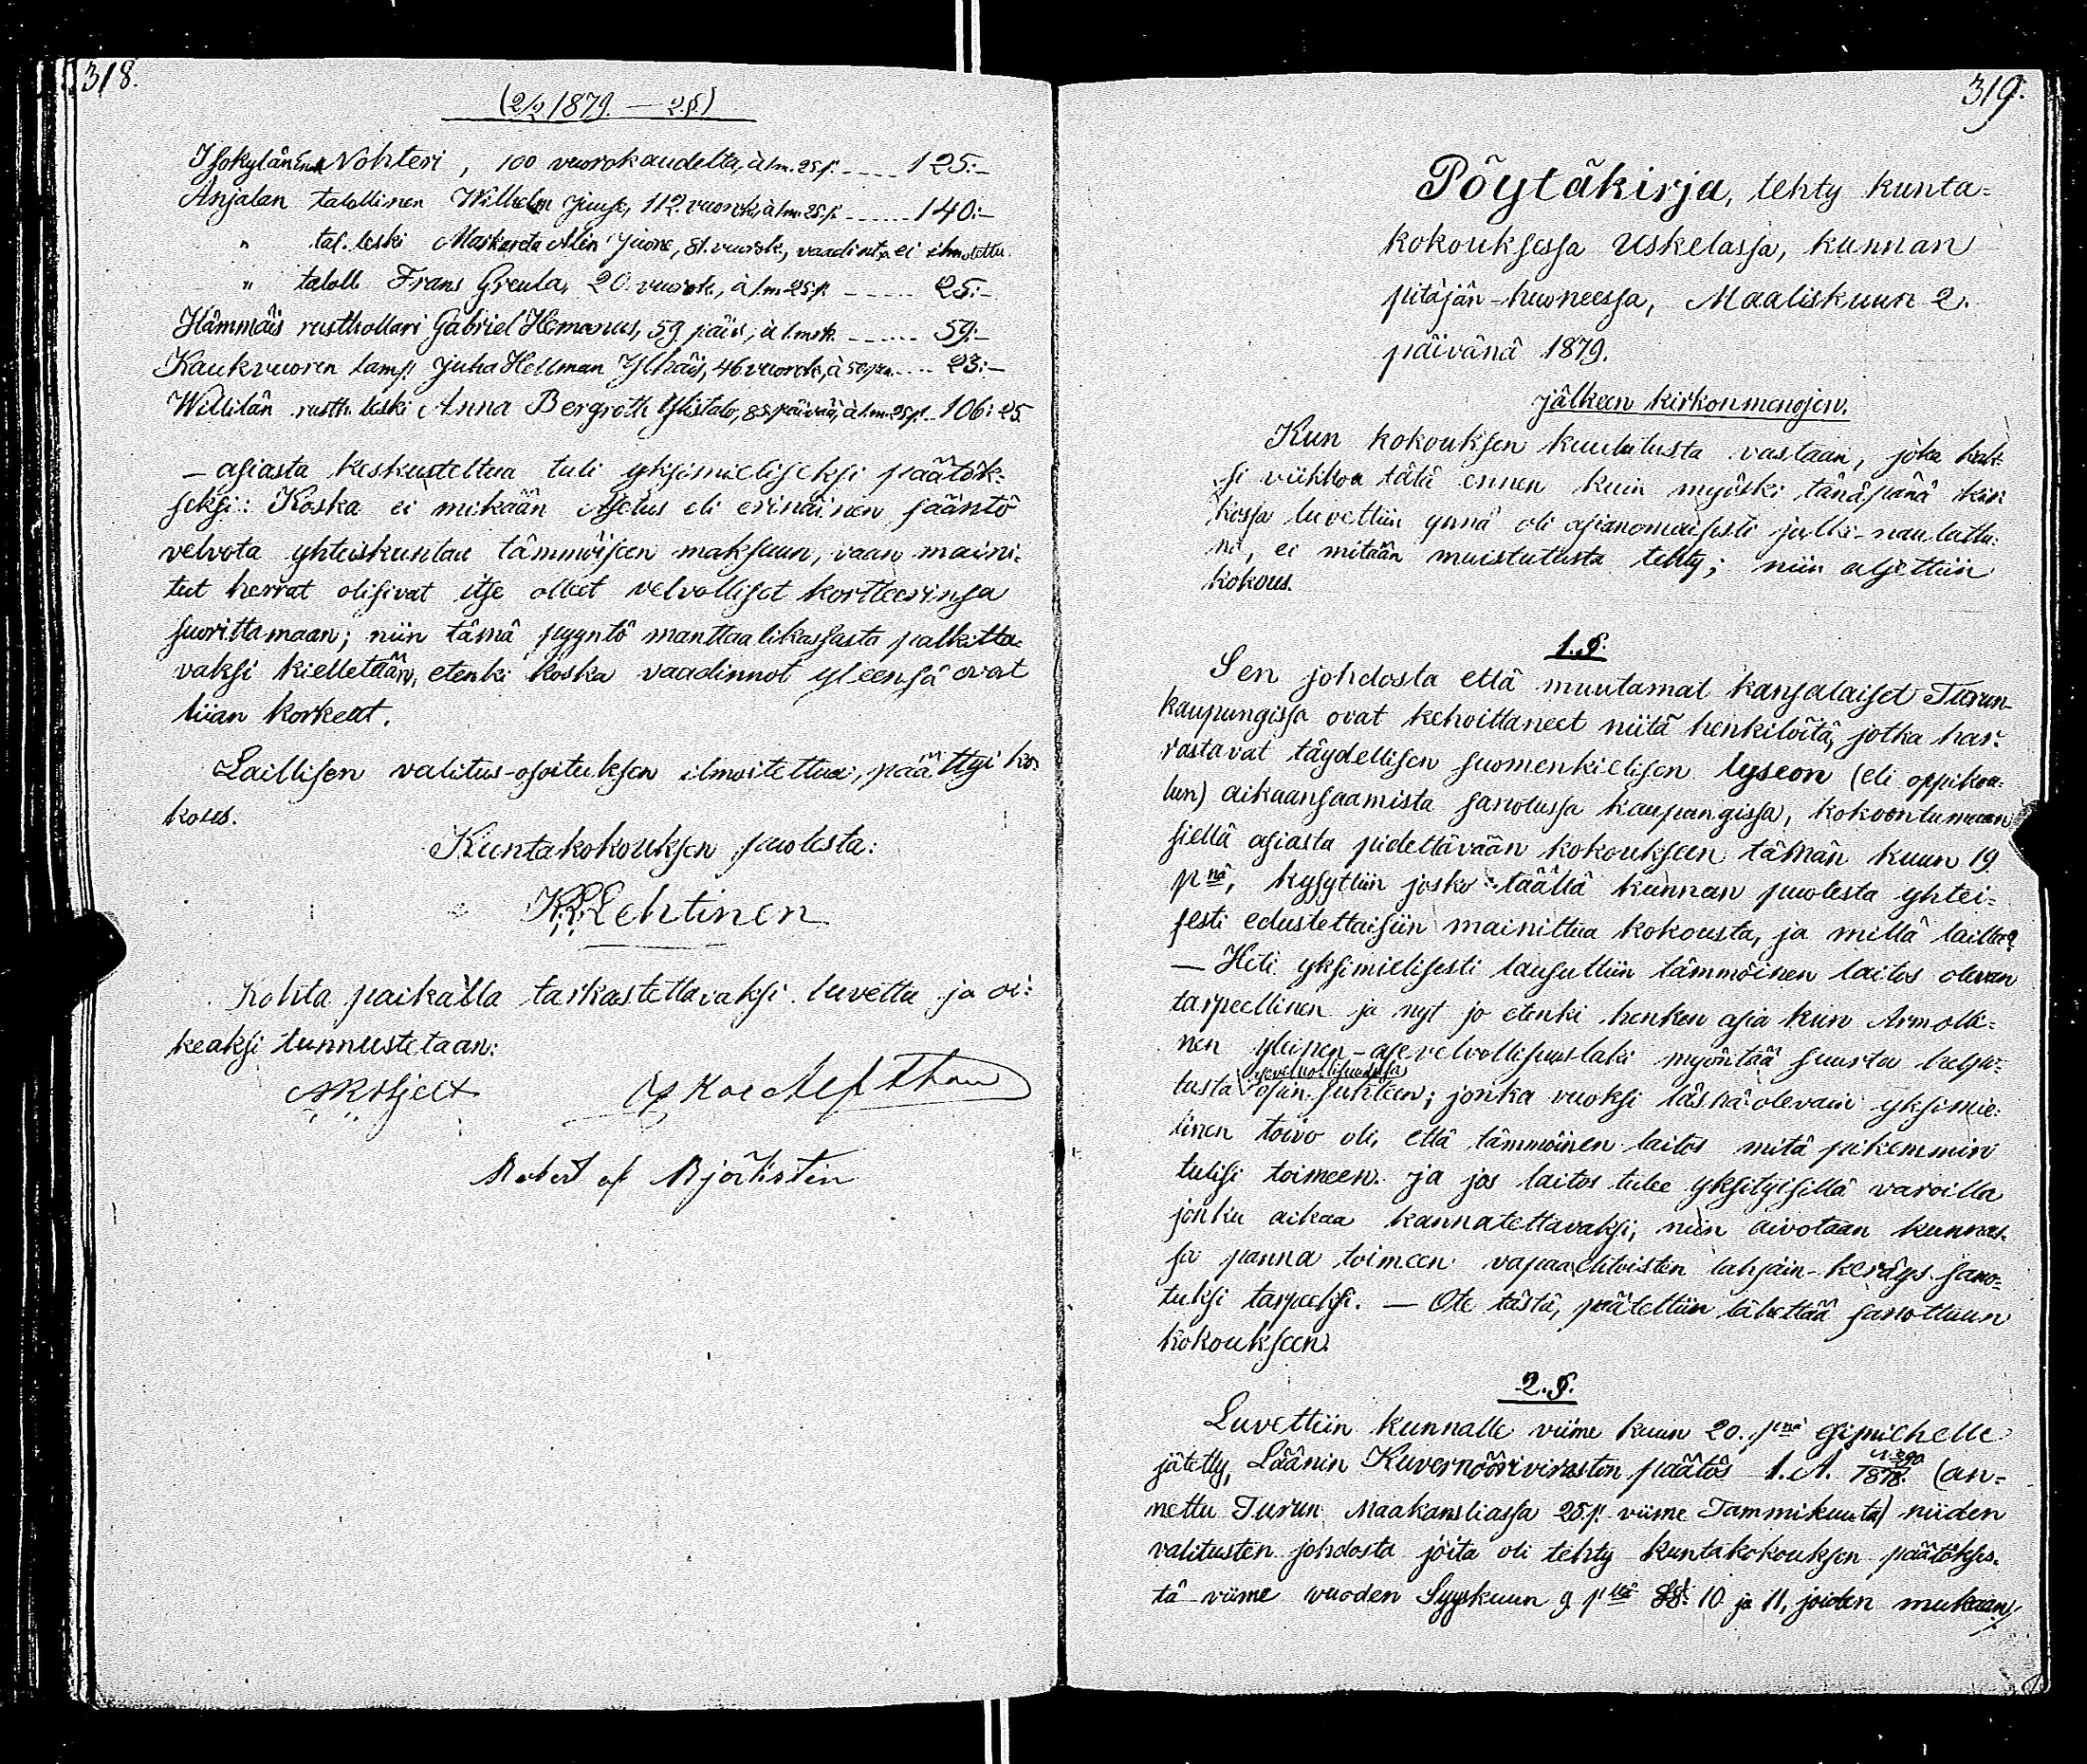 318.
(2/2 1879. — 2.§.)
Isokylän Nohteri, 100 vuorokaudelta, à 1m. 25p. ---- 125:-
Anjalan talollinen Wilhelm Juuse, 112. vuorok., à 1m. 25.p. ---- 140:-
" tal. leski Maskereta Alin Juone, 81. vuorok., vaadintoa ei ilmotettu.
" taloll. Frans Greula, 20. vuorok., à 1m. 25.p. ---- 25:-
Hämmäis rusthollari Gabriel Hemanus, 59 päiv., à 1.mrk. ---- 59:-
Kaukvuoren lamp. Juha Hellman Ylhäis, 46 vuorok., à 50 pen. ---- 23:-
Willilän rusth. leski Anna Bergroth Ylistalo, 85. päivää, à 1m. 25p. -- 106: 25
— asiasta keskusteltua tuli yksimieliseksi päätök-
seksi: Koska ei mikään Asetus eli erinäinen sääntö
velvota yhteiskuntaa tämmöiseen maksuun, vaan maini-
tut herrat olisivat itse olleet velvolliset kortteerinsa
suorittamaan; niin tämä pyyntö manttaalikassasta palkitta-
vaksi kielletään, etenki koska vaadinnot yleensä ovat
liian korkeat.
Laillisen valitus-osoituksen ilmoitettua, päättyi ko-
kous.
Kuntakokouksen puolesta:
K.K. Lehtinen
Kohta paikalla tarkastettavaksi luvettu ja oi-
keaksi tunnustetaan:
Robert af Björksten
319.
Pöytäkirja, tehty kunta-
kokouksessa Uskelassa, kunnan
pitäjän-huoneessa, Maaliskuun 2.
päivänä 1879.
jälkeen kirkonmenojen.
Kun kokouksen kuulutusta vastaan, joka kak-
si viikkoa tätä ennen kuin myöski tänäpänä kir-
kossa luvettiin ynnä oli asianomaisesti julki-naulattu-
na, ei mitään muistutusta tehty; niin aljettiin
kokous.
1.§.
Sen johdosta että muutamat kansalaiset Turun-
kaupungissa ovat kehoittaneet niitä henkilöitä, jotka har-
rastavat täydellisen suomenkielisen lyseon (eli oppikou-
lun) aikaansaamista sanotussa kaupungissa, kokoontumaan
siellä asiasta pidettävään kokoukseen tämän kuun 19
pnä, kysyttiin josko täältä kunnan puolesta yhtei-
sesti edustettaisiin mainittua kokousta, ja millä lailla?
— Heti yksimielisesti lausuttiin tämmöinen laitos olevan
tarpeellinen ja nyt jo etenki henken asia kun Armolli-
nen yleinen-asevelvollisuuslaki myöntää suurta helpo-
tusta asevelvollisuudessa opin suhteen; jonka vuoksi läsnä olevain yksimie-
linen toivo oli, että tämmöinen laitos mitä pikemmin
tulisi toimeen. Ja jos laitos tulee yksityisillä varoilla
jonku aikaa kannatettavaksi, niin aivotaan kunnas-
sa panna toimeen vapaaehtoisten lahjain-keräys sano-
tuksi tarpeeksi. — Ote tästä, päätettiin lähettää sanottuun
kokoukseen.
2.§.
Luvettiin kunnalle viime kuun 20. pnä esimiehelle
jätetty, Läänin Kuvernööriviraston päätös 1. A. N:390 1878. (an-
nettu Turun Maakansliassa 25 p. viime Tammikuuta) niiden
valitusten johdosta joita oli tehty kuntakokouksen päätökses-
tä viime vuoden Syyskuun 9 pltä §§: 10 ja 11, joiden mukaan,